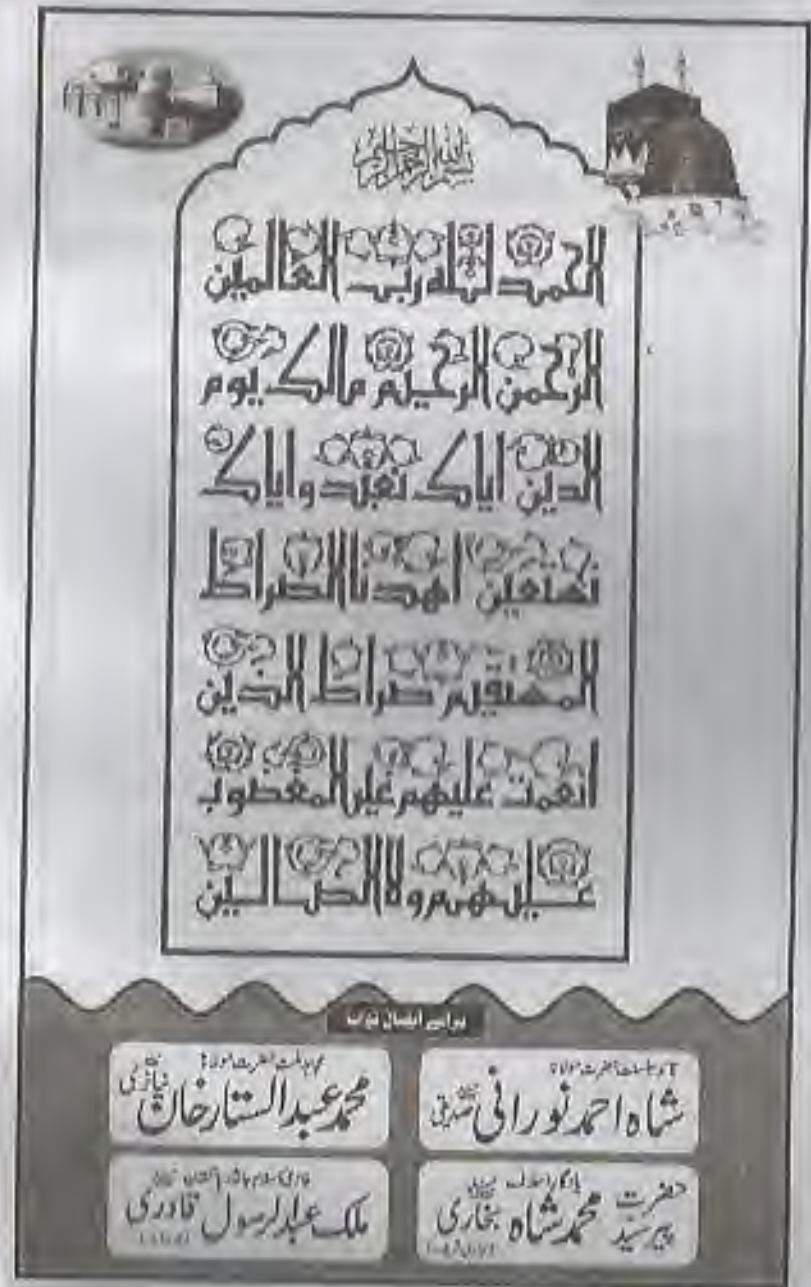 بسم الله الرحمن الرحيم
الحمد لله رب العالمين
الرحمن الرحيم مالك يوم
الدين اياك نعبد واياك
نستعين اهدنا الصراط
المستقيم صراط الذين
انعمت عليهم غير المغضوب
عليهم ولا الضالين
برائے ایصال ثواب
حضرت مولانا
شاہ احمد نورانی صدیقی
مجاہد ملت حضرت مولانا
محمد عبدالستار خان نیازی
حضرت پیر سید محمد شاہ بخاری
ملک عبدالرسول قادری